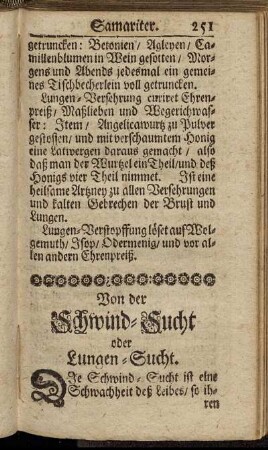 Samariter. 251
getruncken: Betonien/ Agleyen/ Ca-
millenblumen in Wein gesotten/ Mor-
gens und Abends jedesmal ein gemei-
nes Tischbecherlein voll getruncken.
Lungen-Versehrung curiret Ehren-
preiß/ Maßlieben und Wegerichwas-
ser: Item/ Angelicawurtz zu Pulver
gestossen/ und mit verschaumtem Honig
eine Latwergen daraus gemacht/ also
daß man der Wurtzel ein Theil/ und deß
Honigs vier Theil nimmet. Ist eine
heilsame Artzney zu allen Versehrungen
und kalten Gebrechen der Brust und
Lungen.
Lungen-Verstopffung löset auf Wol-
gemuth/ Isop/ Odermenig/ und vor al-
len andern Ehrenpreiß.
Von der
Schwind-Sucht
oder
Lungen-Sucht.
Die Schwind-Sucht ist eine
Schwachheit deß Leibes/ so ih-
ren